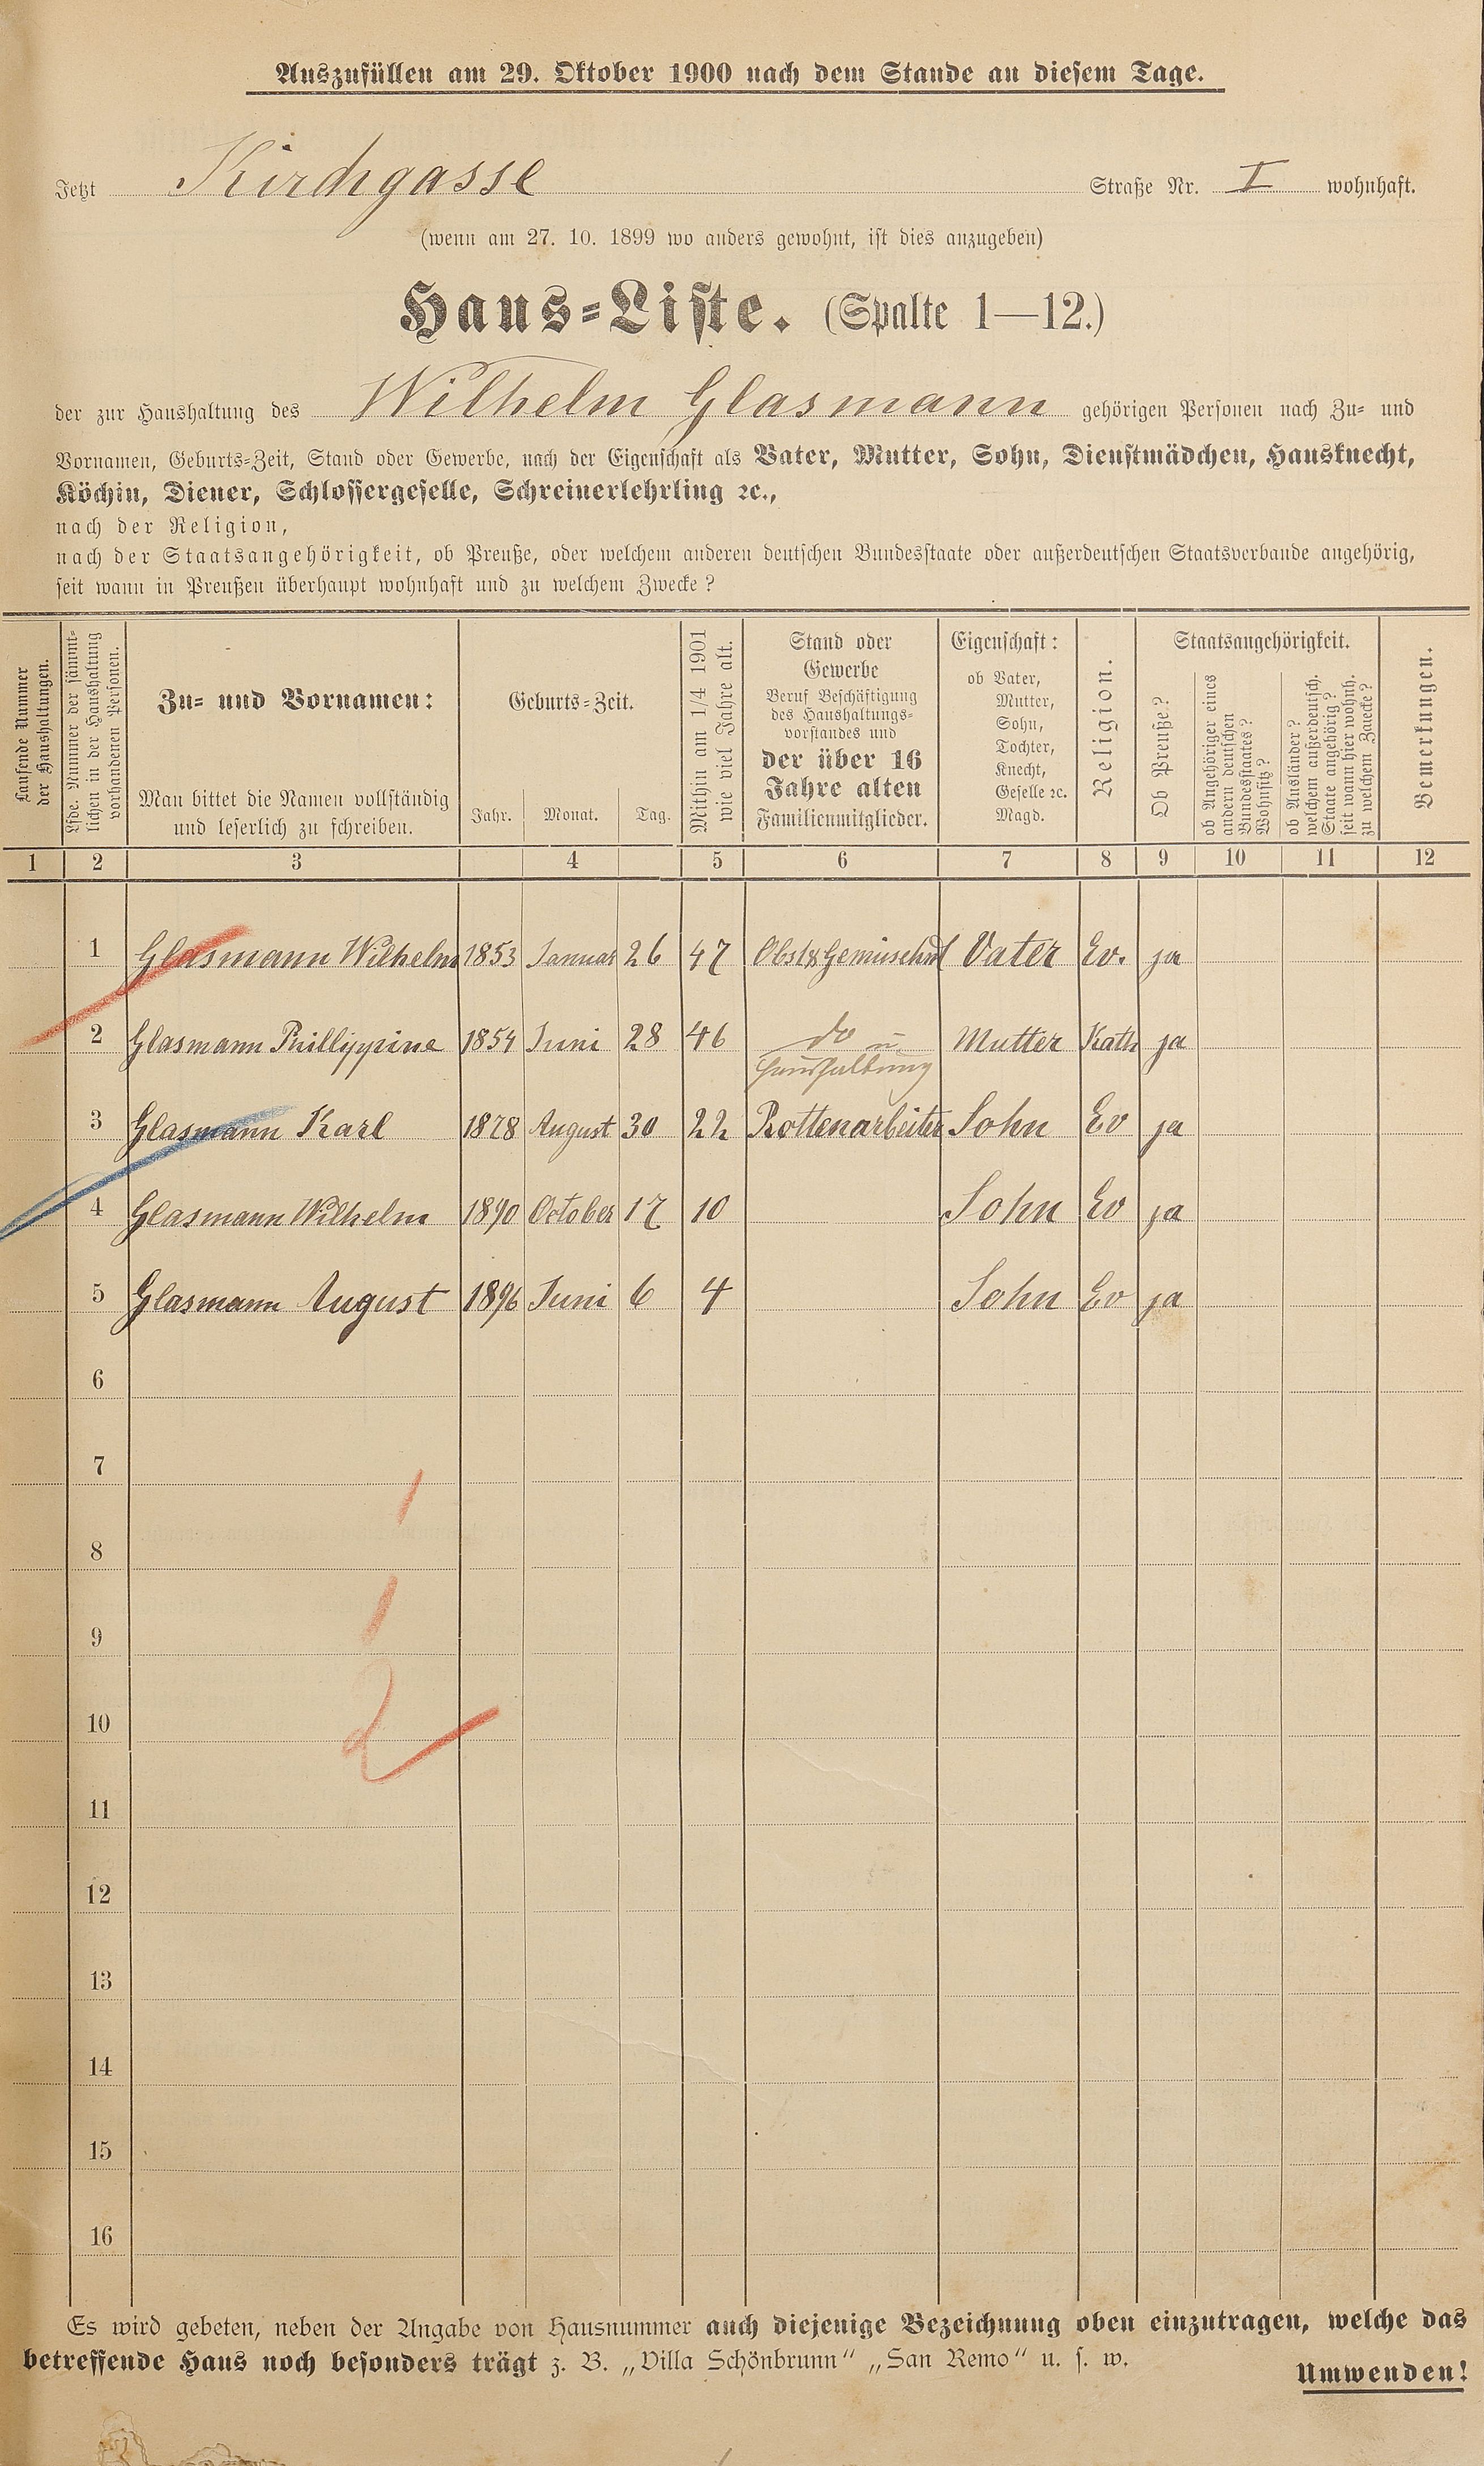 Auszufüllen am 29. Oktober 1900 nach dem Stande an diesem Tage.
Jetzt Kirchgasse Straße Nr. I wohnhaft.
(wenn am 27. 10. 1899 wo anders gewohnt, ist dies anzugeben)
Haus-Liste. (Spalte 1—12.)
der zur Haushaltung des Wilhelm Glasmann gehörigen Personen nach Zu- und
Vornamen, Geburts-Zeit, Stand oder Gewerbe, nach der Eigenschaft als Vater, Mutter, Sohn, Dienstmädchen, Hausknecht,
Köchin, Diener, Schlossergeselle, Schreinerlehrling ꝛc.,
nach der Religion,
nach der Staatsangehörigkeit, ob Preuße, oder welchem anderen deutschen Bundesstaate oder außerdeutschen Staatsverbande angehörig,
seit wann in Preußen überhaupt wohnhaft und zu welchem Zwecke?
Laufende Nummer
der Haushaltungen.
Lfde. Nummer der sämmt-
lichen in der Haushaltung
vorhandenen Personen.
Zu- und Vornamen:
Man bittet die Namen vollständig
und leserlich zu schreiben.
Geburts-Zeit.
Jahr. Monat. Tag.
Mithin am 1/4 1901
wie viel Jahre alt.
Stand oder
Gewerbe
Beruf Beschäftigung
des Haushaltungs-
vorstandes und
der über 16
Jahre alten
Familienmitglieder.
Eigenschaft:
ob Vater,
Mutter,
Sohn,
Tochter,
Knecht,
Geselle ꝛc.
Magd.
Religion.
Staatsangehörigkeit.
Ob Preuße?
ob Angehöriger eines
andern deutschen
Bundesstaates?
Wohnsitz?
ob Ausländer?
welchem außerdeutsch.
Staate angehörig?
seit wann hier wohnh.
zu welchem Zwecke?
Bemerkungen.
1 2 3 4 5 6 7 8 9 10 11 12
1 Glasmann Wilhelm 1853 Januar 26 47 Obst & Gemüsehdl Vater Ev. ja
2 Glasmann Phillippine 1854 Juni 28 46 do u Mutter Kath ja
Haushaltung
3 Glasmann Karl 1878 August 30 22 Rottenarbeiter Sohn Ev ja
4 Glasmann Wilhelm 1890 October 17 10 Sohn Ev ja
5 Glasmann August 1896 Juni 6 4 Sohn Ev ja
6
7
1
8
1
9
2
10
11
12
13
14
15
16
Es wird gebeten, neben der Angabe von Hausnummer auch diejenige Bezeichnung oben einzutragen, welche das
betreffende Haus noch besonders trägt z. B. „Villa Schönbrunn“ „San Remo“ u. s. w.
Umwenden!